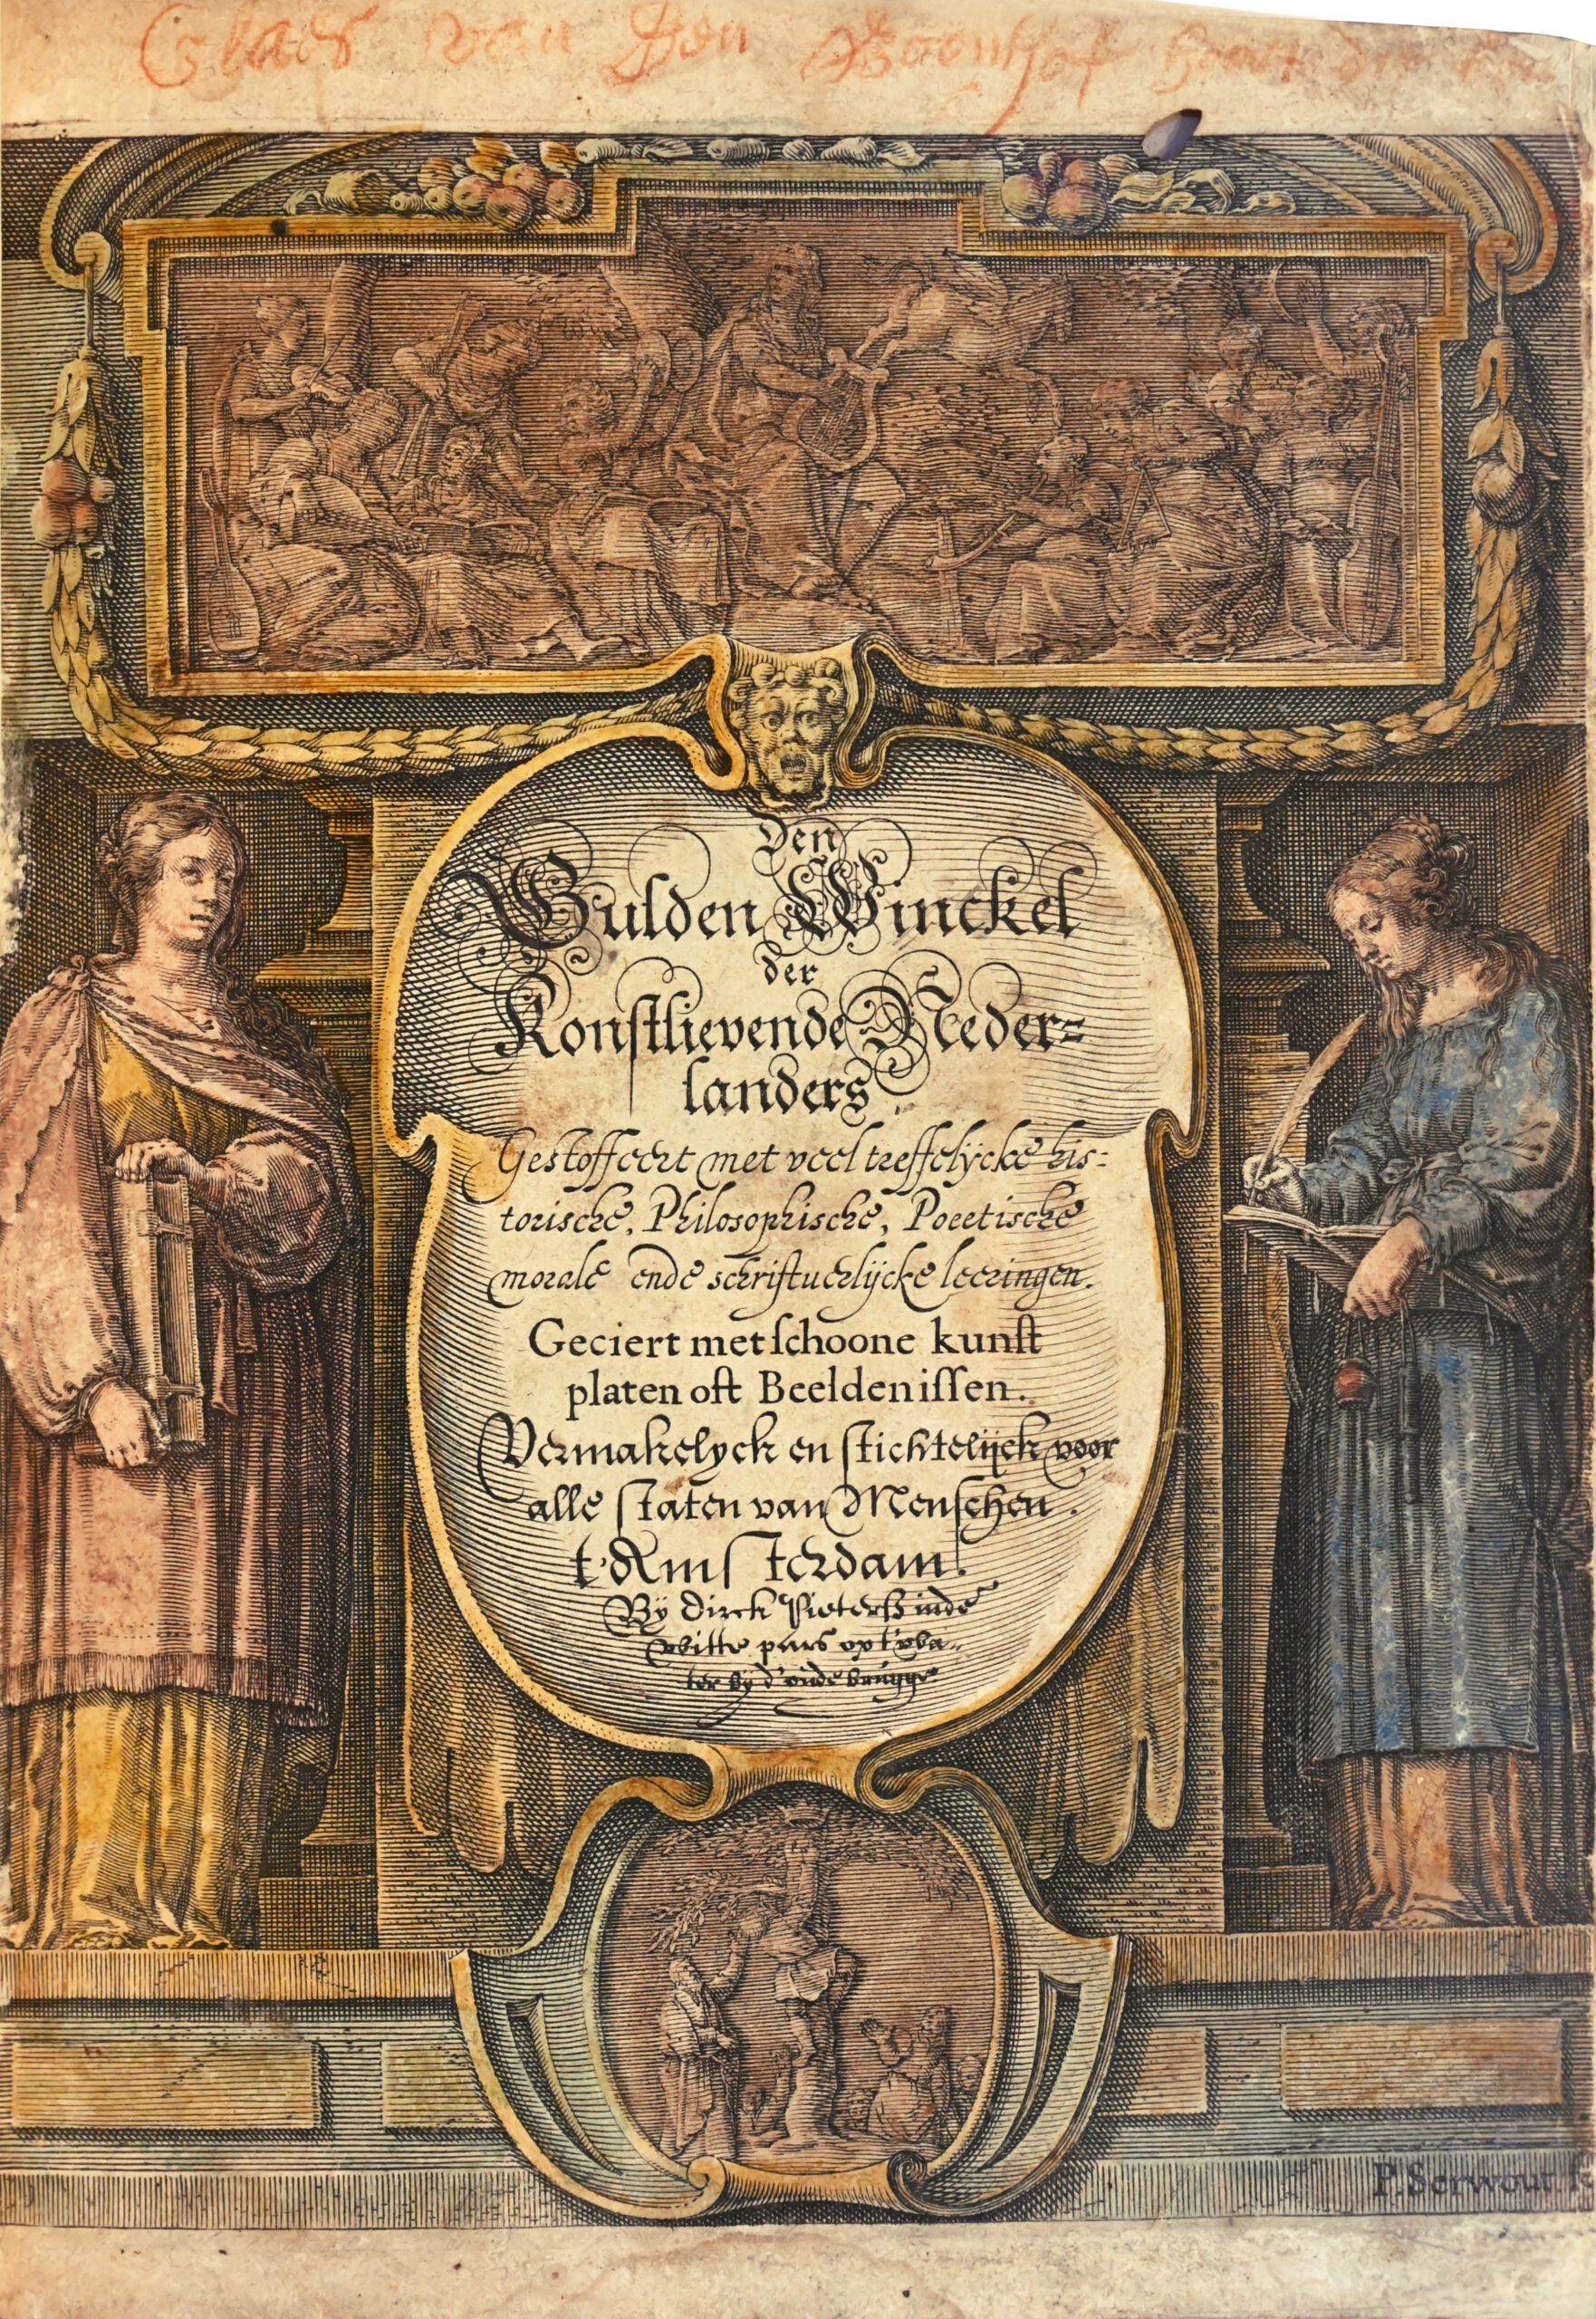 Claes van Den
Den
Gulden Winckel
der
Konstlievende Neder=
landers
Gestoffeert met veel treffelÿcke his=
torische, Philosophische, Poeetische
morale ende schriftuerlÿcke leeringen.
Geciert met ſchoone kunſt
platen oft Beeldeniſſen.
Vermakelyck en ſtichtelÿck voor
alle ſtaten van Menſchen.
t'Amſterdam.
Bÿ Dirck Pieterſz inde
witte pars opt wa=
ter bÿ d'oude brugge
P. Serwout.